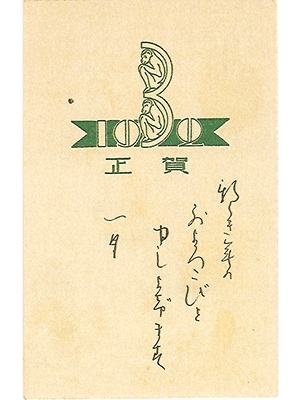 1932
賀正
新しき年の
およろこびを
申しあげます
一月